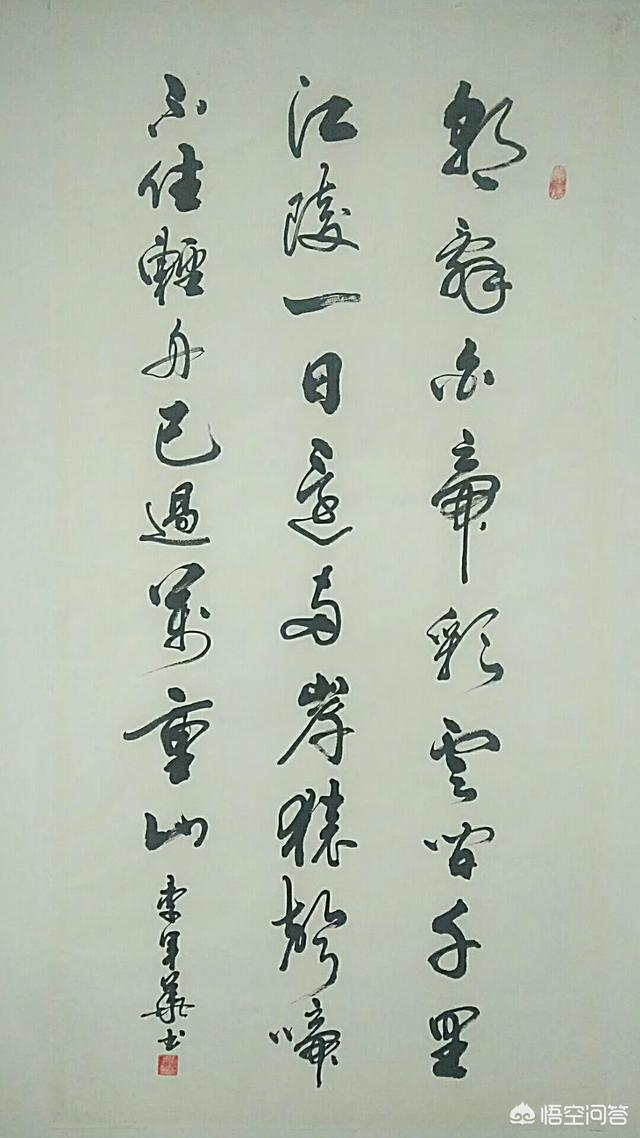 朝辞白帝彩雲間千里
江陵一日還两岸猿聲啼
不住輕舟已過萬重山
李軍華书
悟空问答